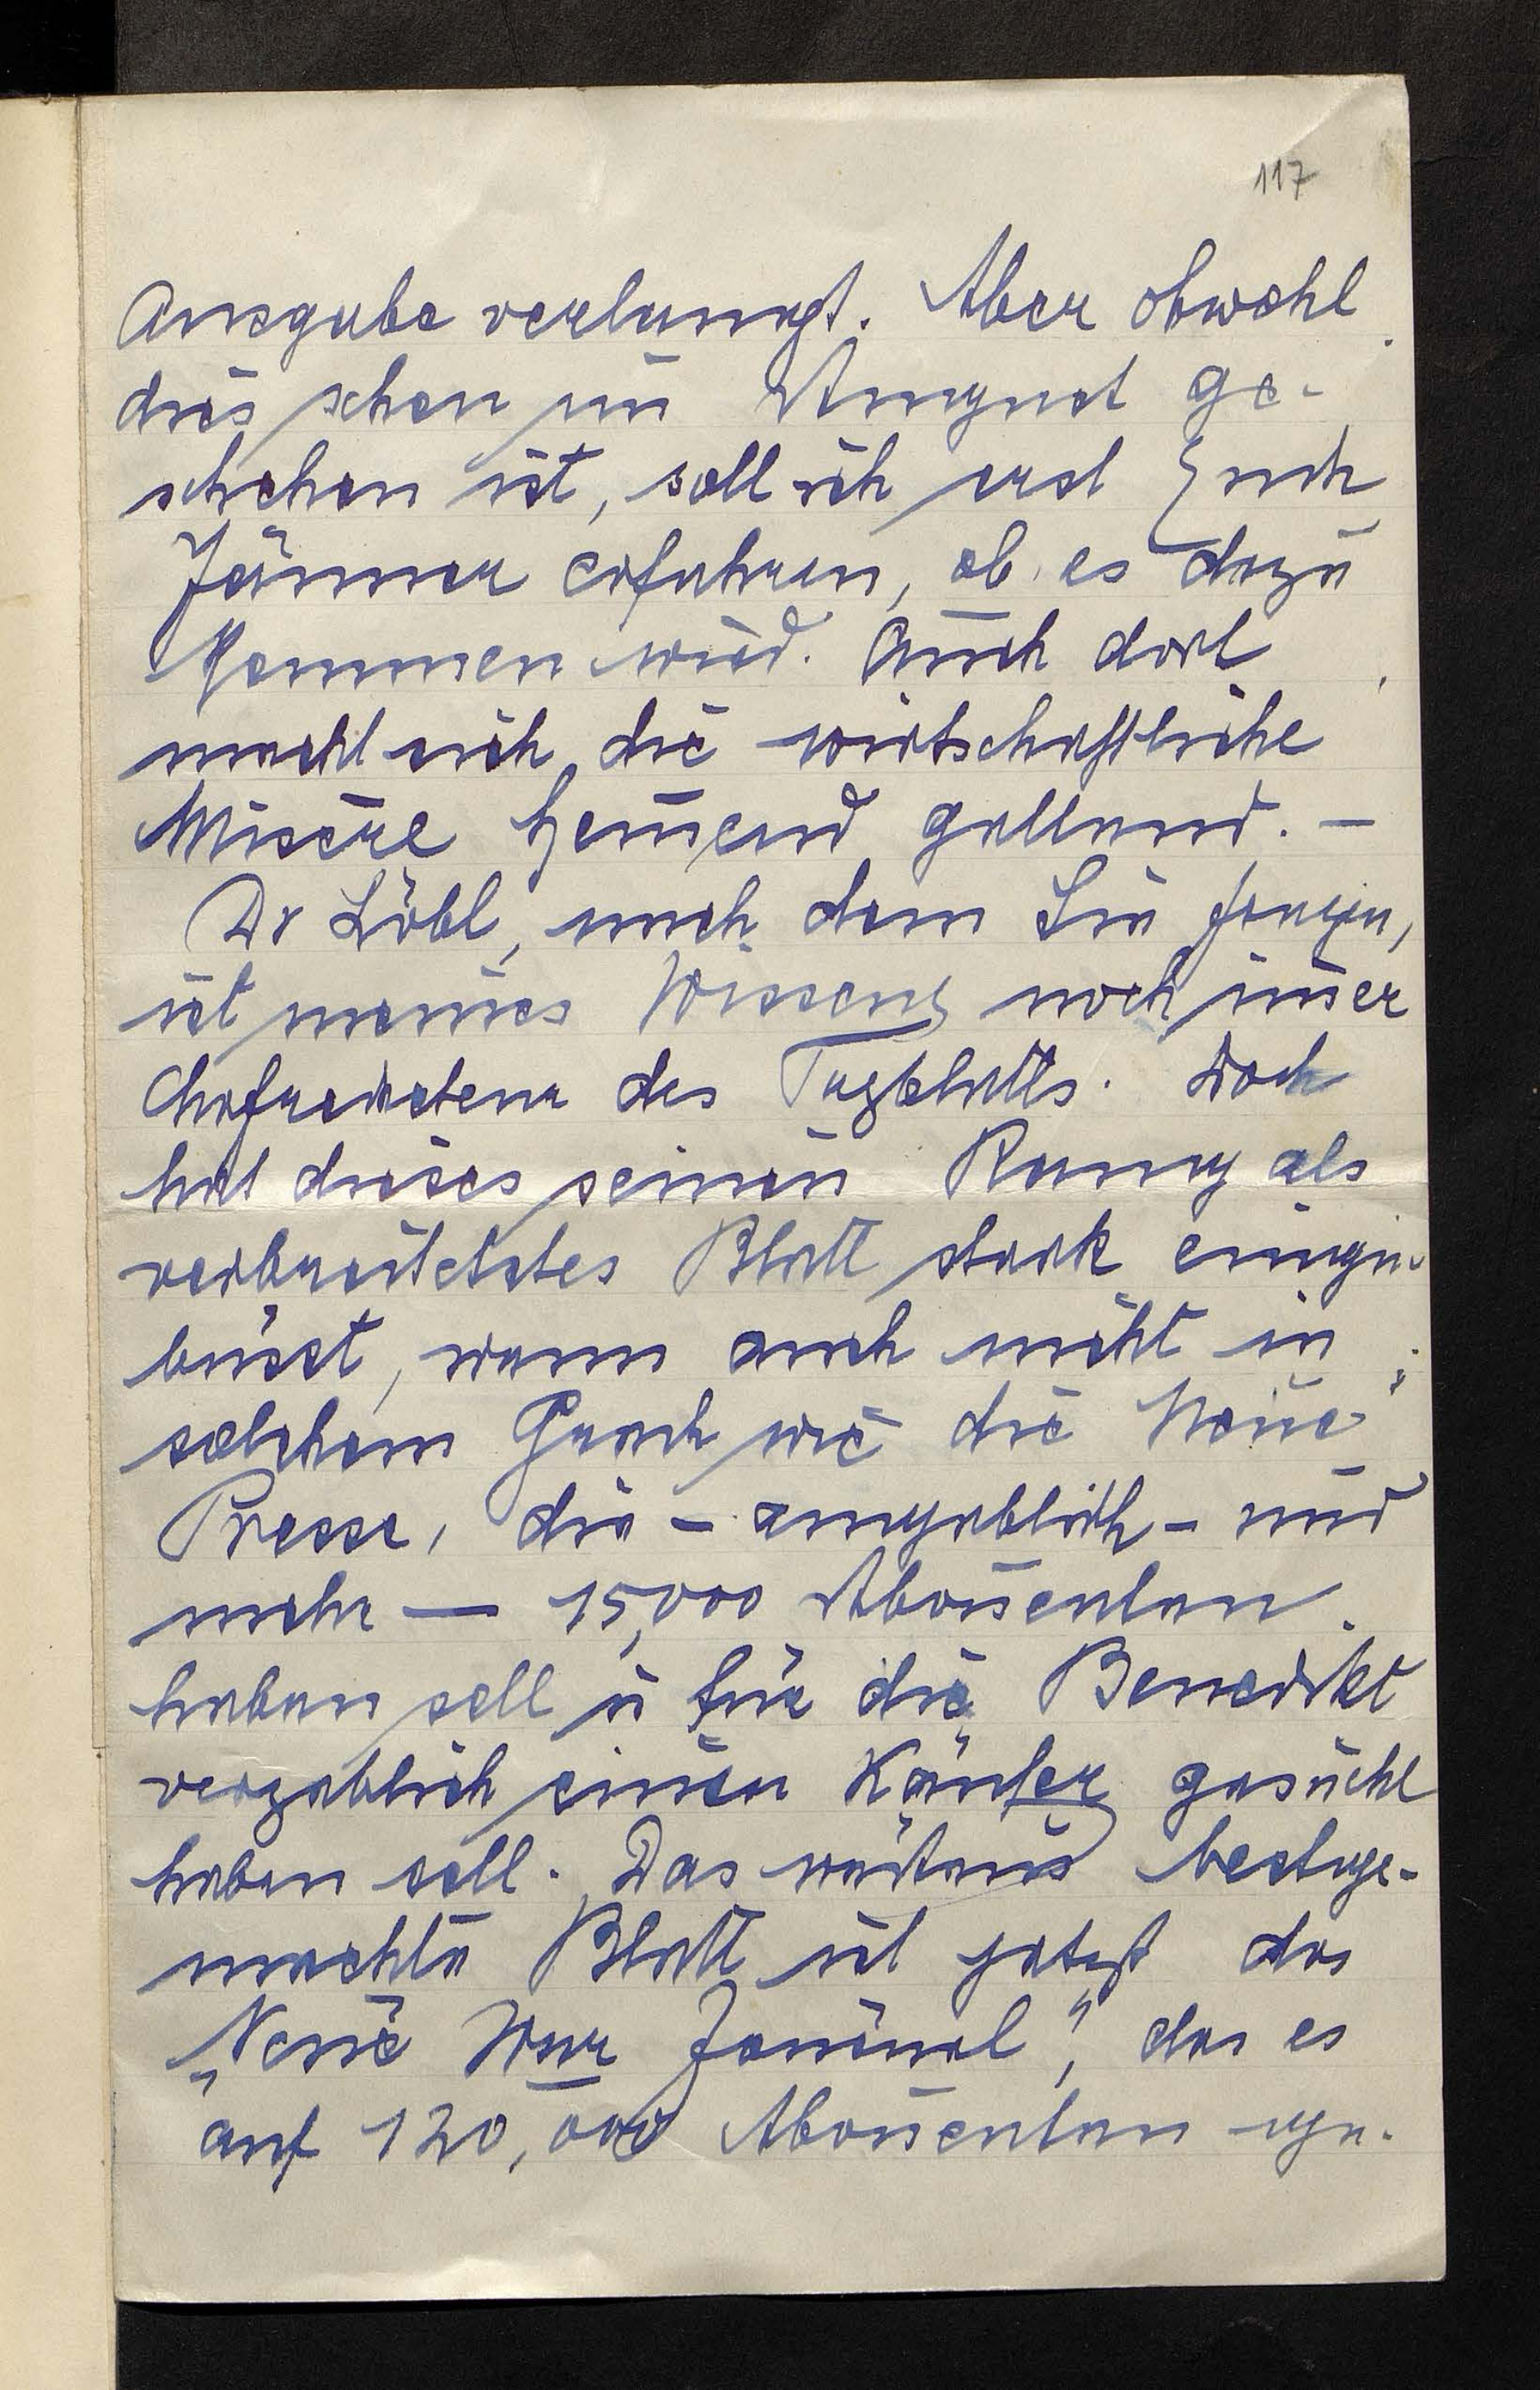 117
Ausgabe verlangt. Aber obwohl
dies schon im August ge-
schehen ist, soll ich erst Ende
Jänner erfahren, ob es dazu
kommen wird. Auch dort
macht sich die wirtschaftliche
Misere hem̄end geltend. –
Dr Löbl, nach dem Sie fragen,
ist meines Wissens noch im̄er
Chefredakteur des Tagblatts. Doch
hat dieses seinen Rang als
verbreitetstes Blatt stark einge-
büsst, wenn auch nicht in
solchem Grade wie die „Neue
Presse, die – angeblich – nur
mehr – 15,000 Abon̄enten
haben soll u für die Benedikt
vergeblich einen Käufer gesucht
haben soll. Das weitaus bestge-
machte Blatt ist jetzt das
„Neue Wnr Journal", das es
auf 120,000 Abon̄enten ge-